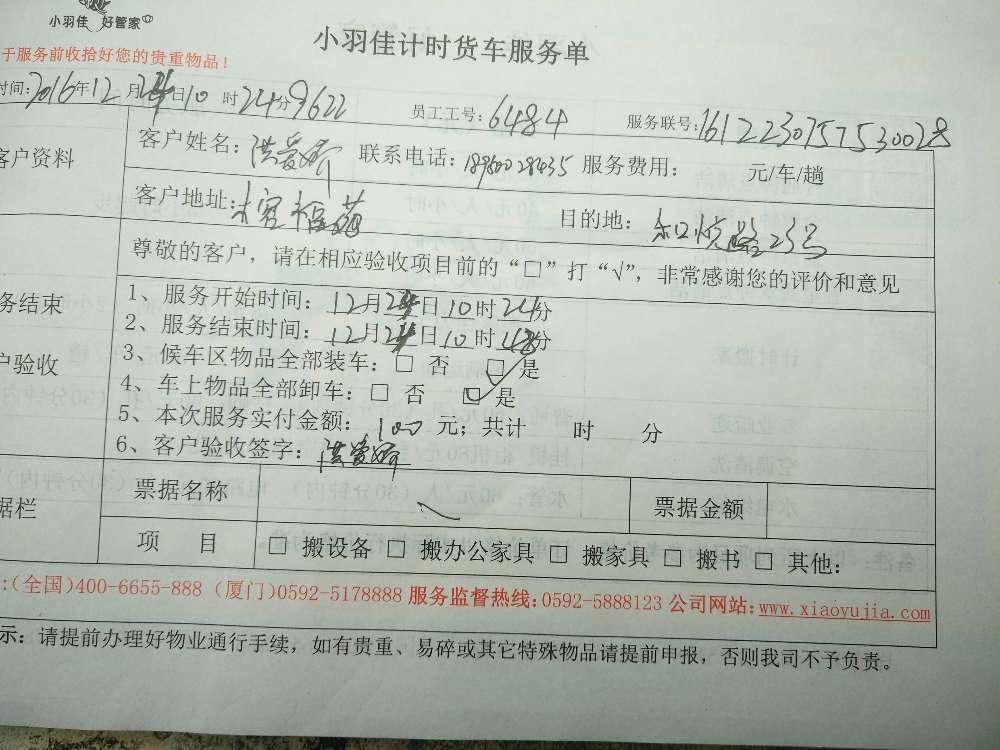 小羽佳 好管家
小羽佳计时货车服务单
于服务前收拾好您的贵重物品!
时间:2016年12月24日10时24分9622 员工工号:6484 服务联号:1612230757530028
客户资料 客户姓名:洪爱娇 联系电话:18960028435 服务费用: 元/车/趟
客户地址: 目的地:和悦路23号
尊敬的客户,请在相应验收项目前的“□”打“√”,非常感谢您的评价和意见
务结束
户验收
1、服务开始时间:12月24日10时24分
2、服务结束时间:12月24日10时48分
3、候车区物品全部装车:□ 否 □ 是
4、车上物品全部卸车:□ 否 □ 是
5、本次服务实付金额:100元;共计 时 分
6、客户验收签字:洪爱娇
据栏 票据名称 票据金额
项 目 □ 搬设备 □ 搬办公家具 □ 搬家具 □ 搬书 □ 其他:
:(全国)400-6655-888 (厦门)0592-5178888 服务监督热线:0592-5888123 公司网站:www.xiaoyujia.com
示:请提前办理好物业通行手续,如有贵重、易碎或其它特殊物品请提前申报,否则我司不予负责。